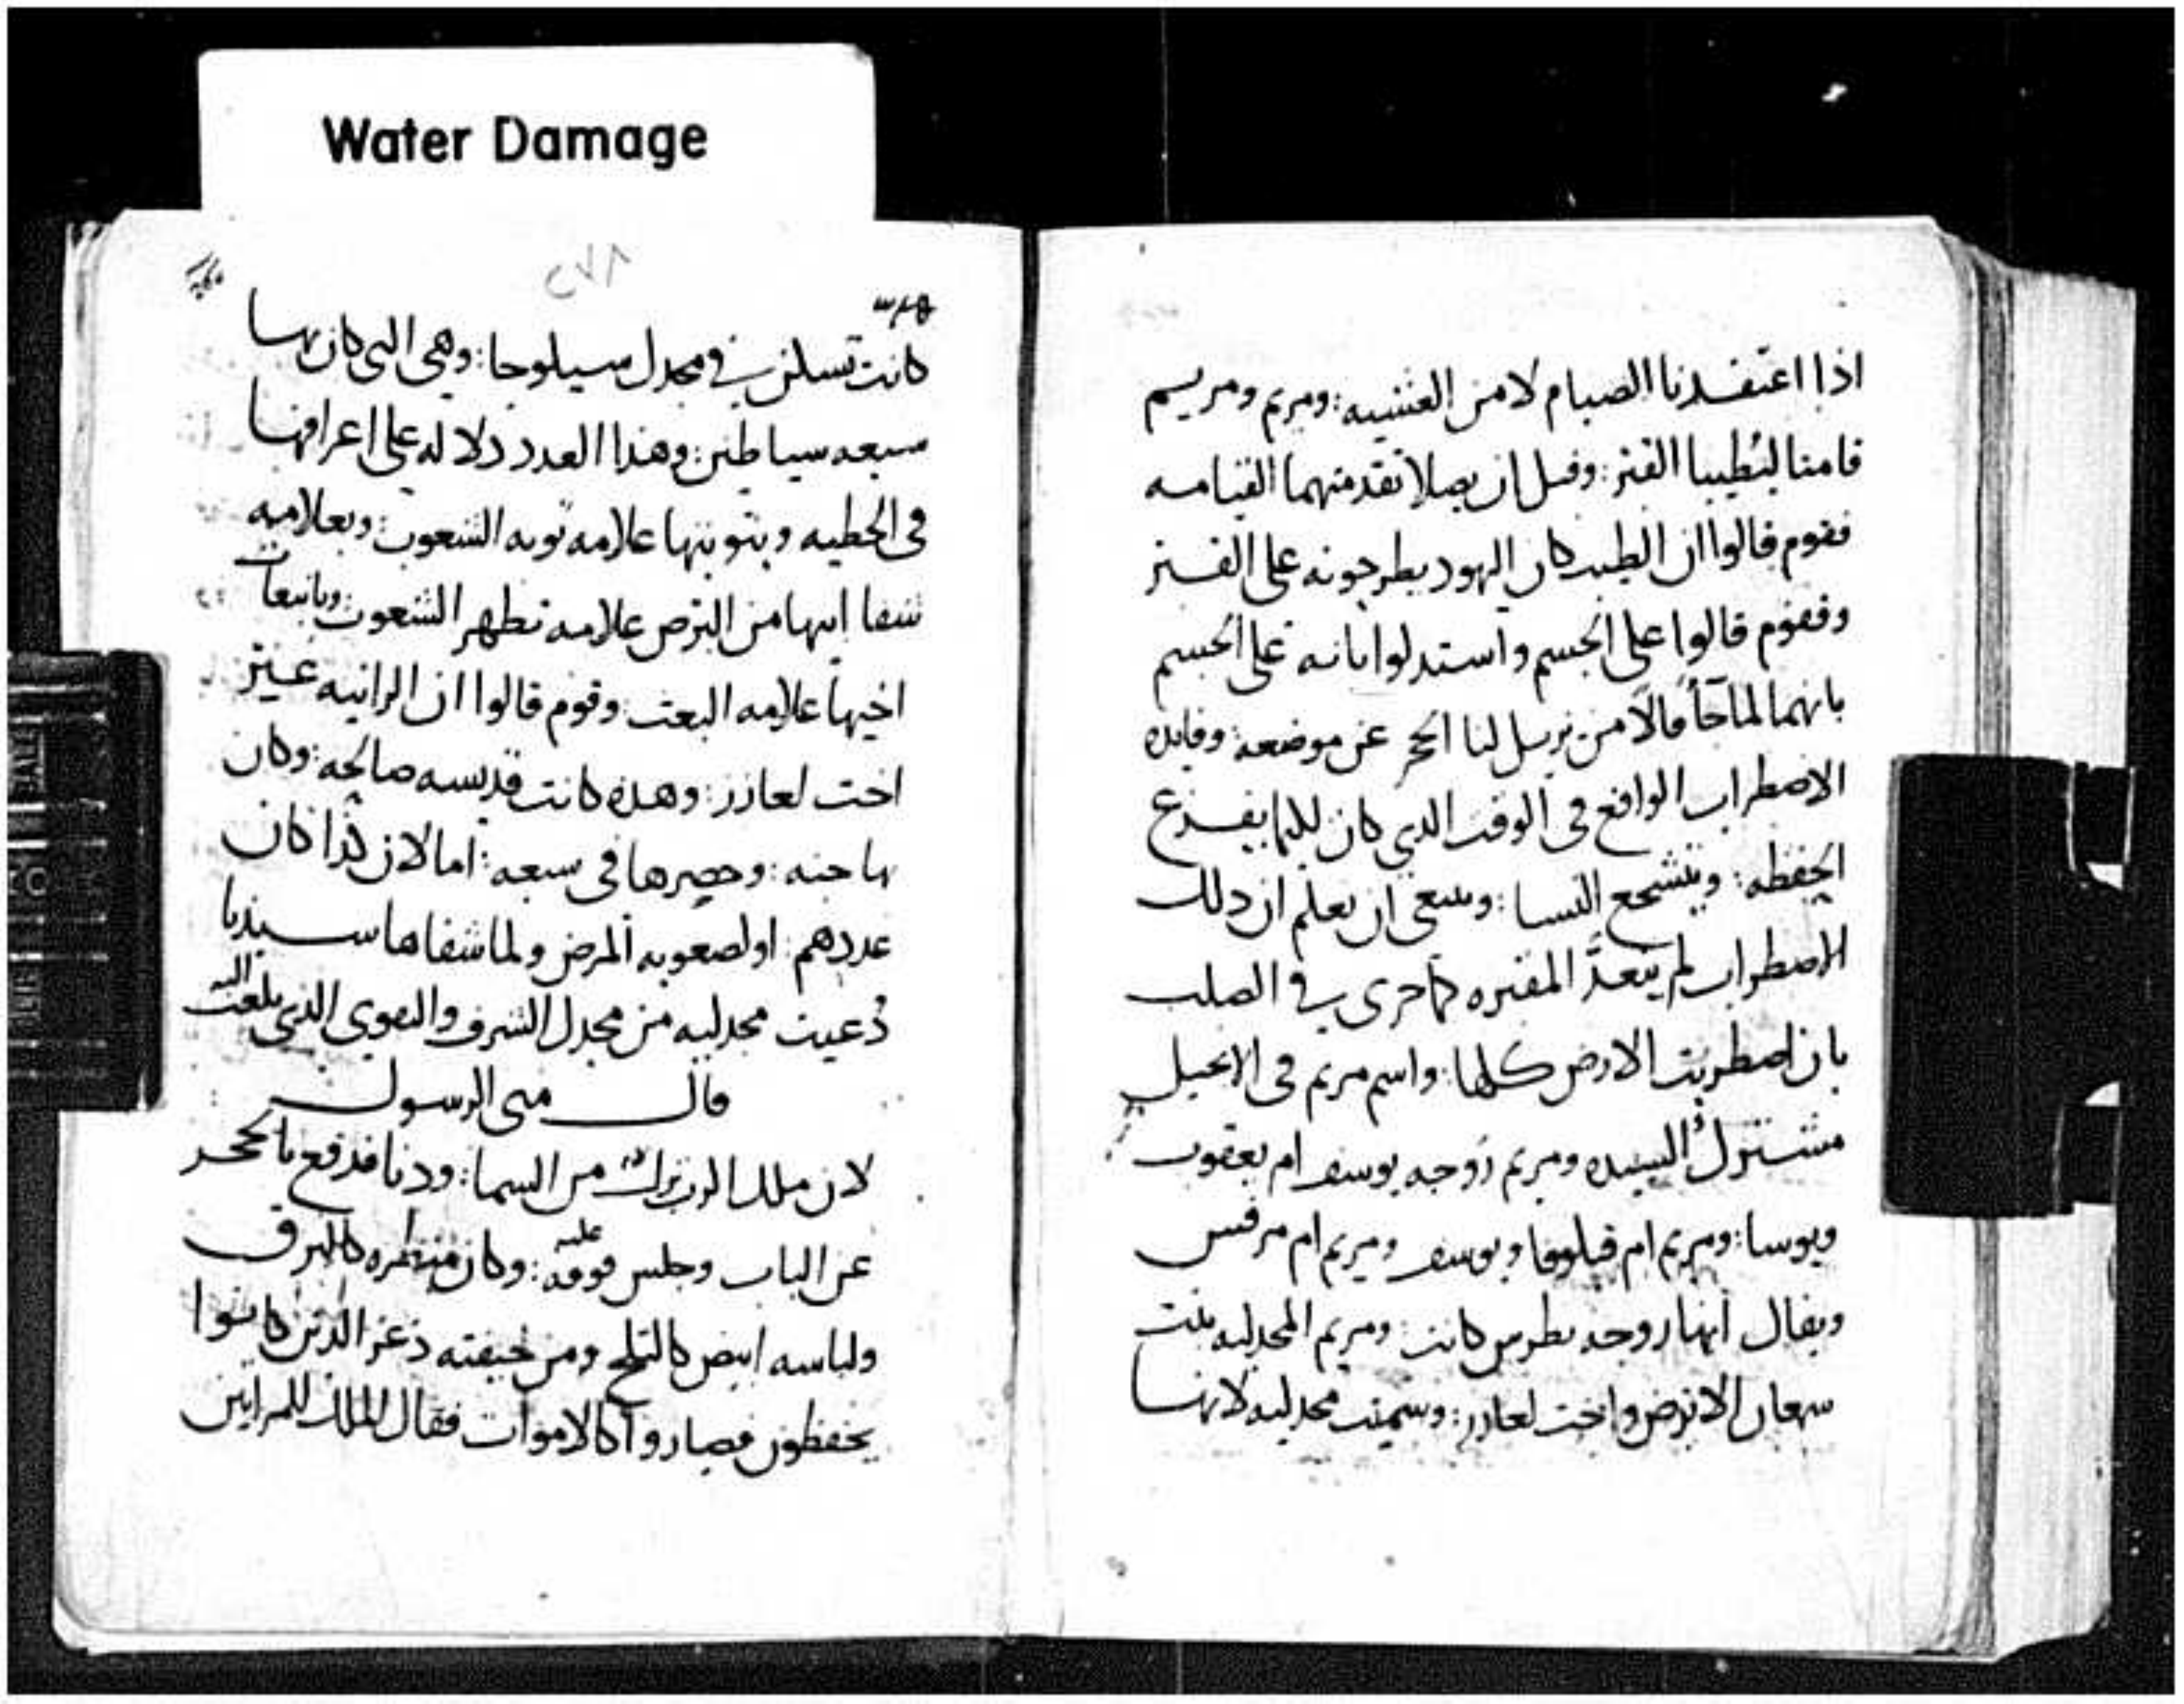 Water Damage
اذا اعتقدنا الصيام لا من العشيه: ومريم ومريم
قامتا ليُطيبا القبر: وقبل ان يصلا تقدمتهما القيامه
فقوم قالوا ان الطيب كان اليهود يطرحونه على القبر
وفقوم قالوا على الجسم واستدلوا بانه على الجسم
بانهما لما جاأ قالا من يزيل لنا الحجر عن موضعه: وفايده
الاضطراب الواقع فى الوقت الدي كان لكيما يفزع
الحفظه: ويتشجع النسا: وينبغى ان يعلم ان دلك
الاضطراب لم يتعدَّ المقبره كما جرى في الصلب
بان اضطربت الارض كلها: واسم مريم فى الانجيل
مشترك السيده ومريم زوجه يوسف ام يعقوب
ويوسا: ومريم ام قيلوفا ويوسف ومريم ام مرقس
ويقال انها زوجه بطرس كانت: ومريم المجدليه بنت
سمعان الابرص واخت لعازر: وسميت مجدليه لانها
٢٧٨
كانت تسكن في مجدل سيلوحا: وهى التى كان بها
سبعه سياطين: وهذا العدد دلاله على اعراقها
فى الخطيه وبتوبتها علامه توبه الشعوب: وبعلاميه
شفا ابيها من البرص علامه تطهر الشعوب وبانبعات
اخيها علامه البعت: وقوم قالوا ان الزانيه غير
اخت لعازر: وهده كانت قديسه صالحه: وكان
بها جنه: وحصرها فى سبعه: اما لان كذا كان
عددهم: او لصعوبه المرض ولما شفاها سيدنا
دُعيت مجدليه من مجدل الشرف والتقوى الدى بلغت اليه
قال متى الرسول
لان ملاك الرب نزل من السما: ودنا فدفع بالحجر
عن الباب وجلس فوقه عليه: وكان منظره كالبرق
ولباسه ابيض كالثلج ومن خيفته دعر الدين كانوا
يحفظون فصاروا كالاموات فقال الملاك للمراتين